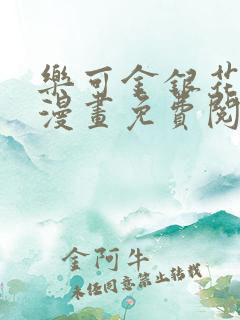 樂可金銀花
漫畫免費閱
金阿牛
未经同意禁止转载